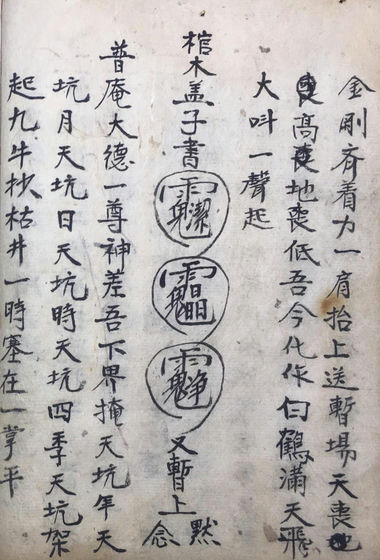 金剛齊着力一肩抬上送暫場天喪
高地喪低吾今化作白鶴滿天飛
大叫一聲起
棺木盖子書
又暫上默念
普庵大德一尊神差吾下界掩天坑年天
坑月天坑日天坑時天坑四季天坑架
起九牛抄枯井一時塞在一掌平